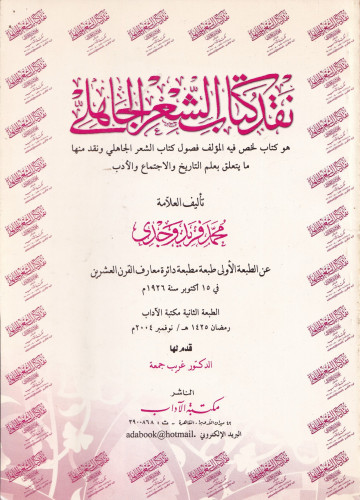 نقد كتاب الشعر الجاهلي
هو كتاب لخص فيه المؤلف فصول كتاب الشعر الجاهلي ونقد منها
ما يتعلق بعلم التاريخ والاجتماع والأدب
تأليف العلامة
محمد فريد وجدي
عن الطبعة الأولى طبعة مطبعة دائرة معارف القرن العشرين
في ١٥ أكتوبر سنة ١٩٢٦م
الطبعة الثانية مكتبة الآداب
رمضان ١٤٢٥ هـ / نوفمبر ٢٠٠٤م
قدم لها
الدكتور غريب جمعة
الناشر
مكتبة الآداب
٤٢ ميدان الأوبرا - القاهرة - ت : ٣٩٠٠٨٦٨
البريد الإلكتروني adabook@hotmail.